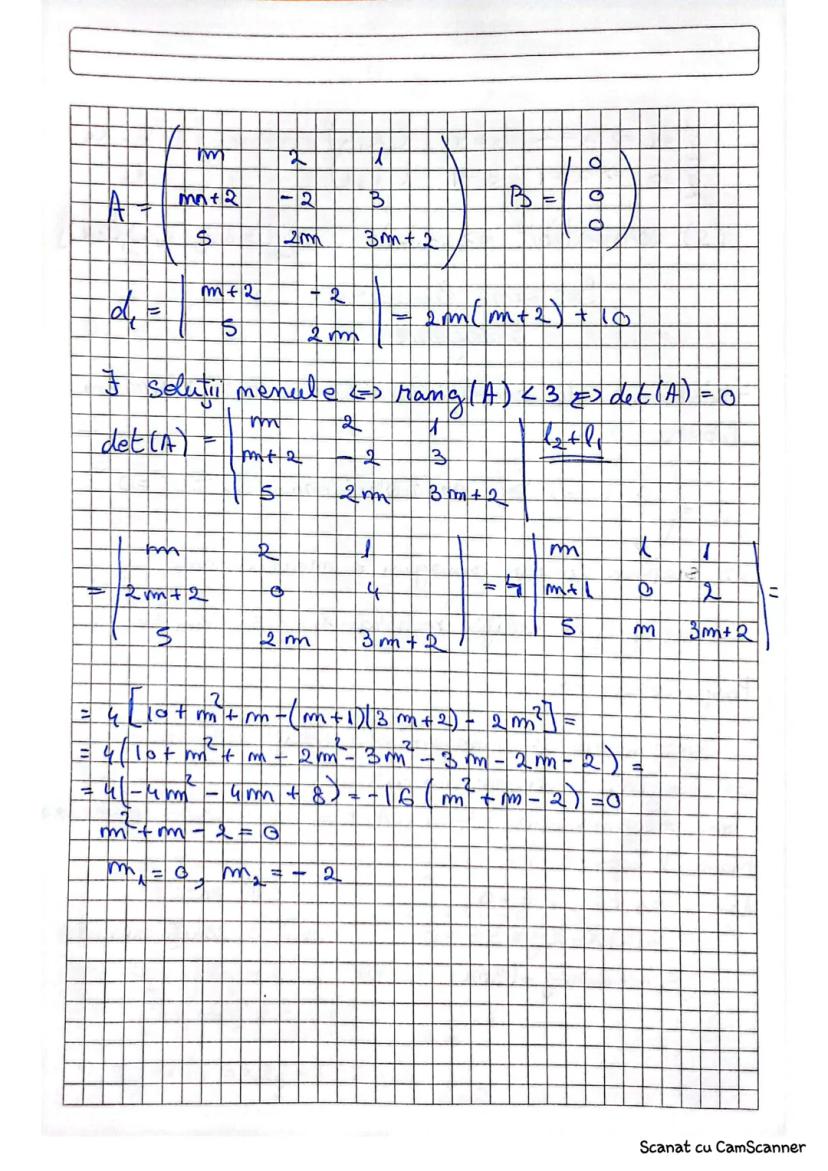 A = ( m 2 1
m+2 -2 3
5 2m 3m+2 ) B = ( 0
0
0 )
d₁ = | m+2 -2
5 2m | = 2m(m+2) + 10
∃ soluții menule <=> rang(A) < 3 <=> det(A) = 0
det(A) = | m 2 1
m+2 -2 3
5 2m 3m+2 | l₂+l₁
= | m 2 1
2m+2 0 4
5 2m 3m+2 | = 4 | m 1 1
m+1 0 2
5 m 3m+2 | =
= 4[10 + m² + m - (m+1)(3m+2) - 2m²] =
= 4(10 + m² + m - 2m² - 3m² - 3m - 2m - 2) =
= 4(-4m² - 4m + 8) = -16(m² + m - 2) = 0
m² + m - 2 = 0
m₁ = 0, m₂ = -2
Scanat cu CamScanner